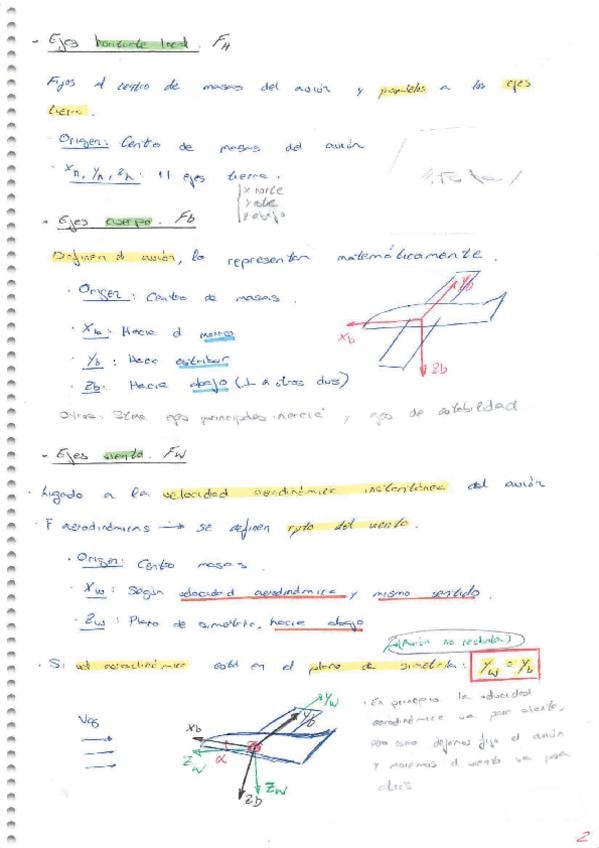 - Ejes horizonte local. FH
Fijos al centro de masas del avión y paralelos a los ejes
tierra.
· Origen: Centro de masas del avión
· xh, yh, zh: 11 ejes tierra.
x norte
y este
z abajo
- Ejes cuerpo. Fb
Definen el avión, lo representan matemáticamente.
· Origen: Centro de masas.
· xb: Hacia el morro
· yb: Hacia estribor
· zb: Hacia abajo (⊥ a otros dos)
xb
yb
zb
Otros: Stma ejes principales inercia y ejes de estabilidad
- Ejes viento. FW
· Ligado a la velocidad aerodinámica instantánea del avión
· F aerodinámicas → se definen rpto del viento.
· Origen: Centro masas.
· xw: Según velocidad aerodinámica y mismo sentido.
· zw: Plano de simetría, hacia abajo
(Avión no resbala)
· Si vel aerodinámica está en el plano de simetría: yw = yb
xb
α
yw
yb
zw
zb
· En principio la velocidad
aerodinámica va hacia delante,
pero como dejamos fijo el avión
y movemos el viento va para
atrás
2